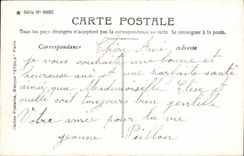 ★ Série Nº 9093.
CARTE POSTALE
Tous les pays étrangers n'acceptent pas la correspondance au recto. Se renseigner à la poste.
Correspondance
Adresse
Chère Amie
je vous souhaite une bonne et
heureuse année et une parfaite santé
ainsi qua Mademoiselle Elise et
quelle soit toujours bien gentille
Votre amie pour la vie
jeanne Peillon